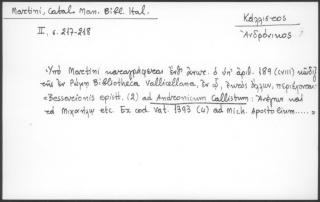 Martini, Catal. Man. Bibl. Ital.
II, σ. 217-218
Κάλλιστος
Ἀνδρόνικος
Ὑπὸ Martini καταγράφεται ἐνθ' ἀνωτ. ὁ ὑπ' ἀριθ. 189 (CVIII) κῶδιξ
τῆς ἐν Ρώμῃ Bibliotheca Vallicellana, ἐν ᾧ, ἐκτὸς ἄλλων, περιέχονται:
«Bessarionis epistt. (2) ad Andronicum Callistum:
τὰ Μιχαήλῳ etc. Ex cod. Vat. 1393 (4) ad Mich. Apostolium..... »